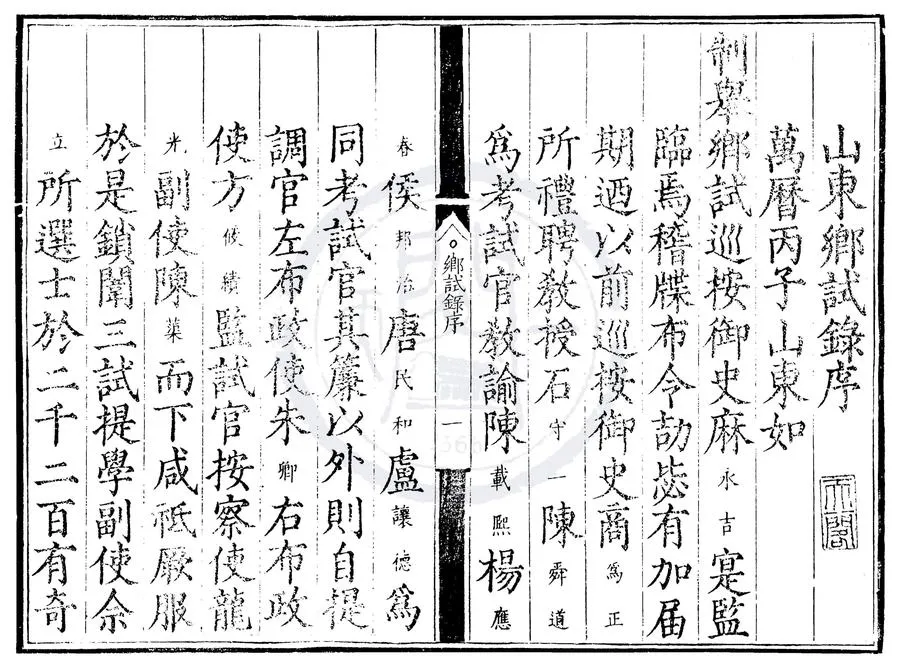 山東鄉試錄序
萬曆丙子山東如
制舉鄉試巡按御史麻永吉寔監
臨焉稽牒布令劼毖有加屆
期迺以前巡按御史商爲正
所禮聘敎授石守一陳舜道
爲考試官敎諭陳載熙楊應
鄉試錄序
一
春侯邦治唐民和盧讓德爲
同考試官其簾以外則自提
調官左布政使朱卿右布政
使方攸績監試官按察使龍
光副使陳蕖而下咸祗厥服
於是鎖闈三試提學副使佘
立所選士於二千二百有奇
天一閣